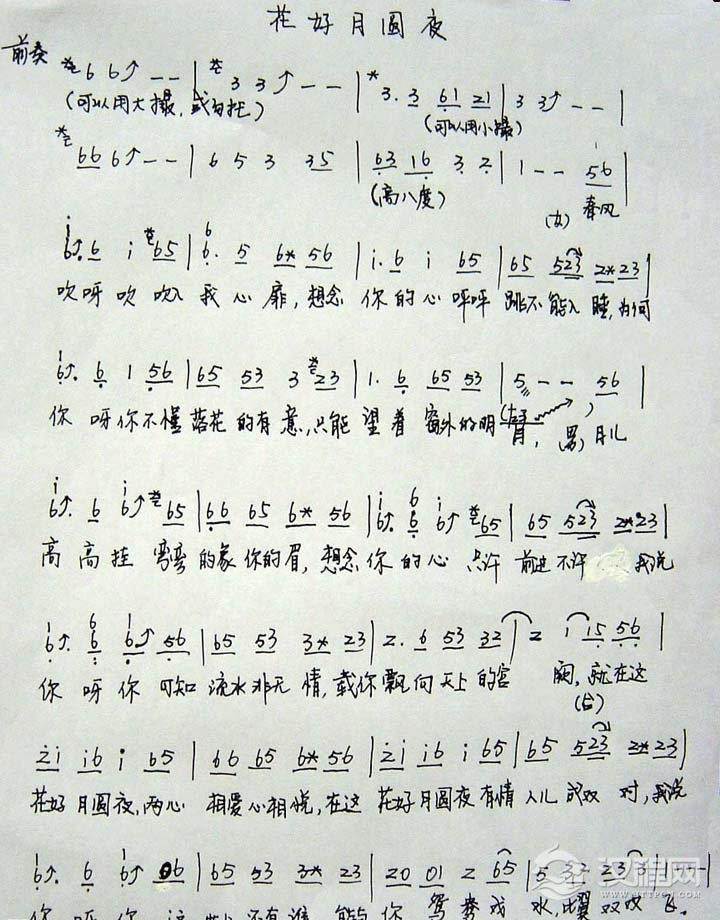 花好月圆夜
前奏 6 6 - - | 3 3 - - | 3. 3 61 21 | 3 3 - - |
(可以用大撮,或勾托) (可以用小撮)
66 6 - - | 6 5 3 35 | 63 16 3 2 | 1 - - 56 |
(高八度) (女) 春风
6. 6 i 65 | 6. 5 6* 56 | i. 6 i 65 | 65 523 2*23 |
吹呀吹 吹入 我心扉,想念 你的心 呯呯 跳不能入睡,为何
6. 6 1 56 | 65 53 3 23 | 1. 6 65 53 | 5 - - 56 |
你 呀你不懂 落花的有意,只能 望着 窗外的明月, (男) 月儿
6. 6 6 65 | 66 65 6* 56 | 6. 6 6 65 | 65 523 2*23 |
高 高挂 弯弯 的象你的眉,想念 你的心 只许 前进不许 我说
6. 6 6 56 | 65 53 3* 23 | 2. 6 53 32 | 2 i 15 56 |
你 呀你 可知 流水非无 情,载你 飘向天上的宫 阙,就在这
(合)
2i i6 i 65 | 66 65 6* 56 | 2i i6 i 65 | 65 523 2*23 |
花好月圆夜,两心 相爱心相悦,在这 花好月圆夜有情 人儿 成双 对,我说
6. 6 6 56 | 65 53 3* 23 | 20 01 2 65 | 5 32 23 | 1 - |
你 呀你 这 世上还有谁 能与你 鸳鸯戏 水,比翼双双飞